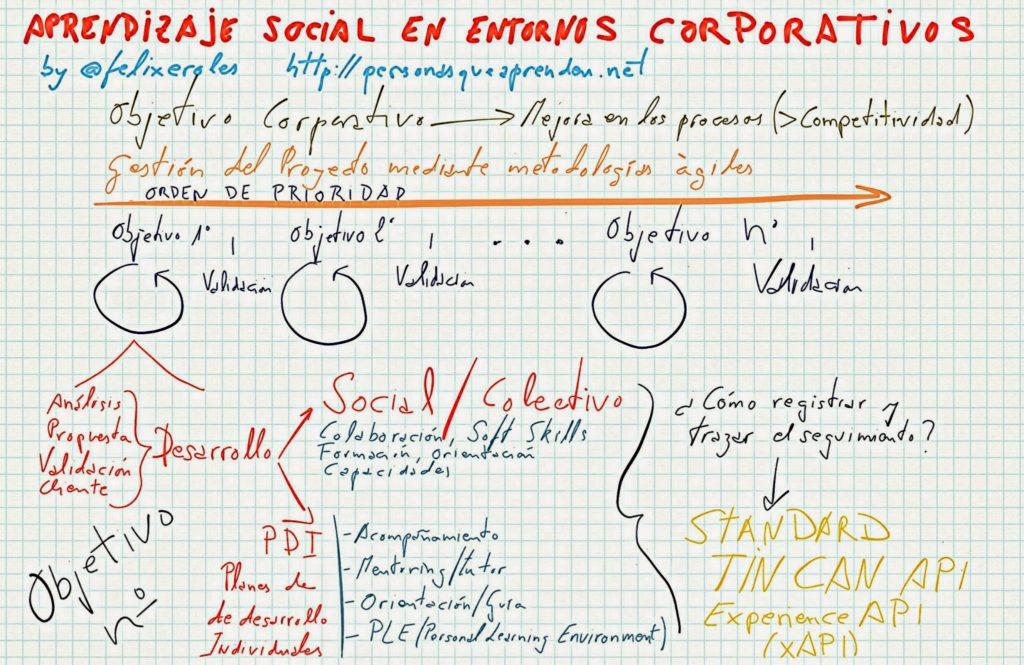 APRENDIZAJE SOCIAL EN ENTORNOS CORPORATIVOS
by @felixeroles http://personasqueaprenden.net
Objetivo Corporativo → Mejora en los procesos (>Competitividad)
Gestión del Proyecto mediante metodologías àgiles
ORDEN DE PRIORIDAD
Objetivo 1º
Validación
Objetivo 2º
Validación
....
Objetivo nº
Validación
Análisis
Propuesta
Validación
Cliente
Desarrollo
Social / Colectivo
Colaboración, Soft Skills
Formación, orientación
Capacidades
PDI
Planes de
de desarrollo
Individuales
- Acompañamiento
- Mentoring/tutor
- Orientación/Guía
- PLE (Personal Learning Environment)
¿Cómo registrar y
trazar el seguimiento?
STANDARD
TIN CAN API
Experience API
(xAPI)
Objetivo
nº